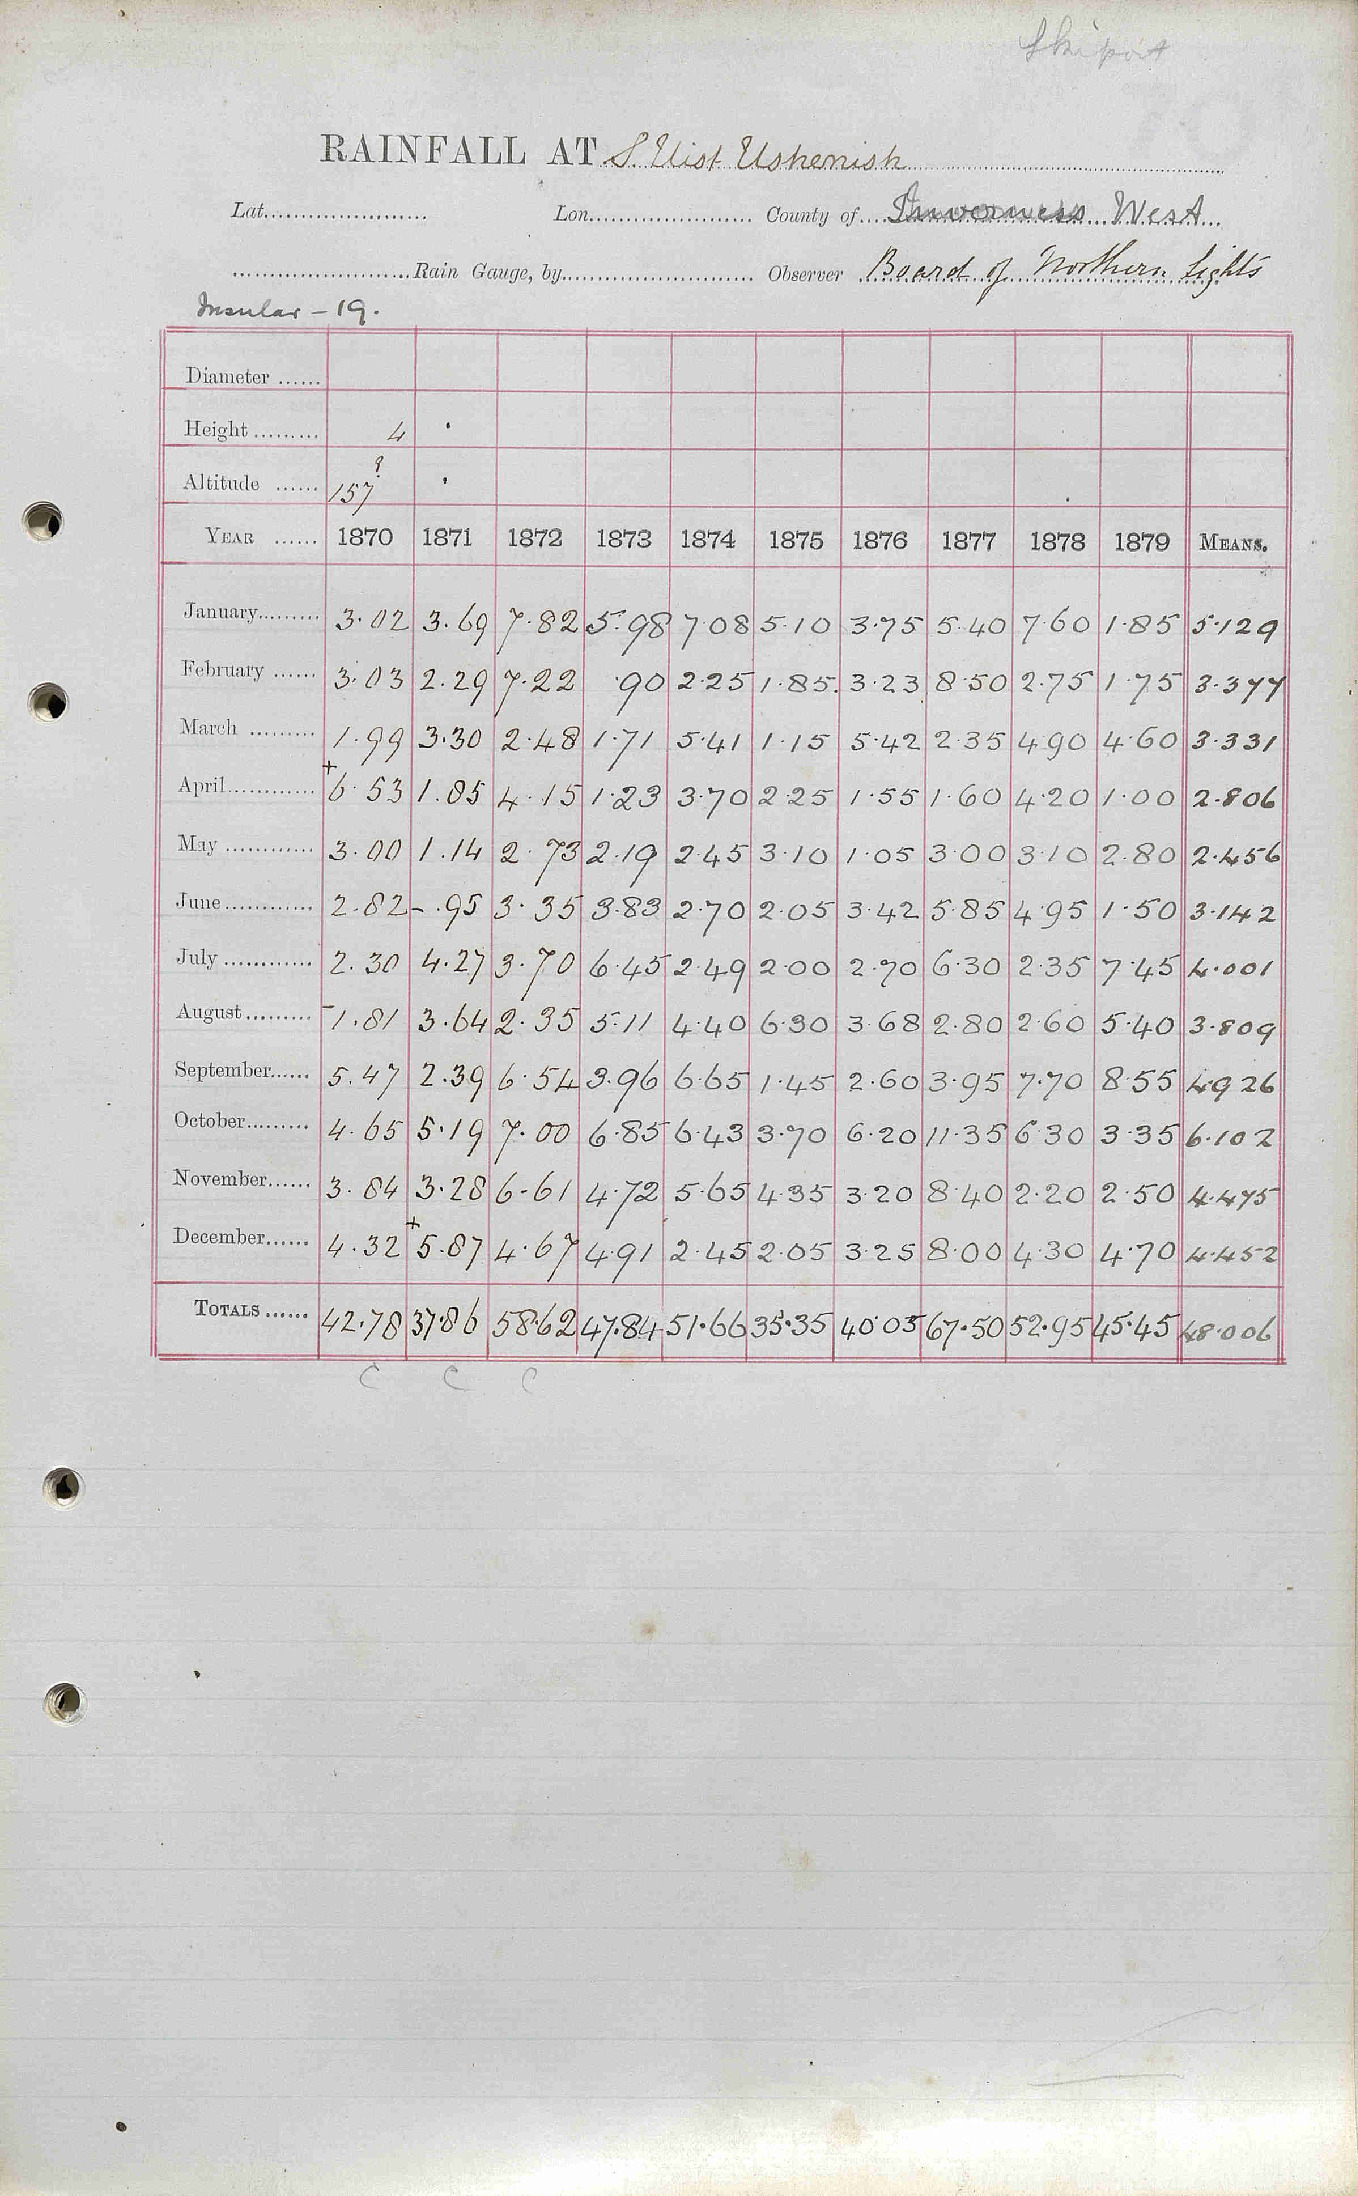 Skiport
RAINFALL AT S. Uist Ushenish
Lat. Lon. County of Inverness West
Rain Gauge, by Observer Board of Northern Lights
Insular - 19.
Diameter
Height 4 ·
Altitude 157? ·
YEAR 1870 1871 1872 1873 1874 1875 1876 1877 1878 1879 MEANS.
January 3.02 3.69 7.82 5.98 7.08 5.10 3.75 5.40 7.60 1.85 5.129
February 3.03 2.29 7.22 .90 2.25 1.85 3.23 8.50 2.75 1.75 3.377
March 1.99 3.30 2.48 1.71 5.41 1.15 5.42 2.35 4.90 4.60 3.331
April +6.53 1.85 4.15 1.23 3.70 2.25 1.55 1.60 4.20 1.00 2.806
May 3.00 1.14 2.73 2.19 2.45 3.10 1.05 3.00 3.10 2.80 2.456
June 2.82 -.95 3.35 3.83 2.70 2.05 3.42 5.85 4.95 1.50 3.142
July 2.30 4.27 3.70 6.45 2.49 2.00 2.70 6.30 2.35 7.45 4.001
August -1.81 3.64 2.35 5.11 4.40 6.30 3.68 2.80 2.60 5.40 3.809
September 5.47 2.39 6.54 3.96 6.65 1.45 2.60 3.95 7.70 8.55 4.926
October 4.65 5.19 7.00 6.85 6.43 3.70 6.20 11.35 6.30 3.35 6.102
November 3.84 3.28 6.61 4.72 5.65 4.35 3.20 8.40 2.20 2.50 4.475
December 4.32 +5.87 4.67 4.91 2.45 2.05 3.25 8.00 4.30 4.70 4.452
TOTALS 42.78 37.86 58.62 47.84 51.66 35.35 40.05 67.50 52.95 45.45 48.006
C C C